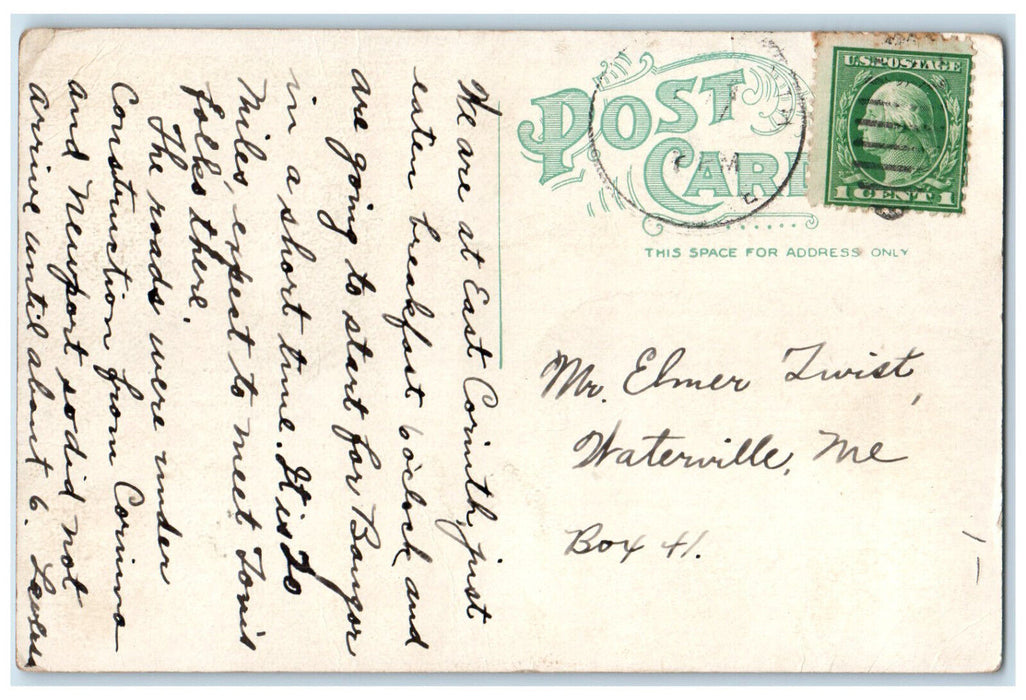 We are at East Corinth, just
eaten breakfast 6 o'clock and
are going to start for Bangor
in a short time. It is 20
Miles, expect to meet Tom's
folks there.
The roads were under
Construction from Corinna
and Newport so did not
arrive until about 6.
POST CARD
U.S. POSTAGE
1 CENT 1
THIS SPACE FOR ADDRESS ONLY
Mr. Elmer Twist,
Waterville, Me
Box 41.